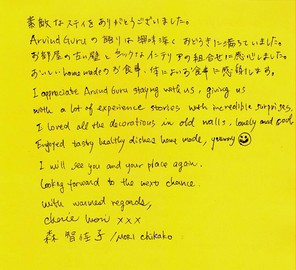 素敵なステイをありがとうございました。
Arvind Guru の語りは興味深く おどろきに満ちていました。
お部屋の古い壁とシックなインテリアの組合せに感心しました。
おいしい home made のお食事、体によいお食事に感謝します。
I appreciate Arvind Guru staying with us, giving us
with a lot of experience stories with incredible surprises.
I loved all the decorations in old walls. lovely and cool
Enjoyed tasty healthy dishes home made, yummy
I will see you and your place again.
Looking forward to the next chance.
With warmed regards,
cherie mori xxx
森 智佳子 / Mori Chikako